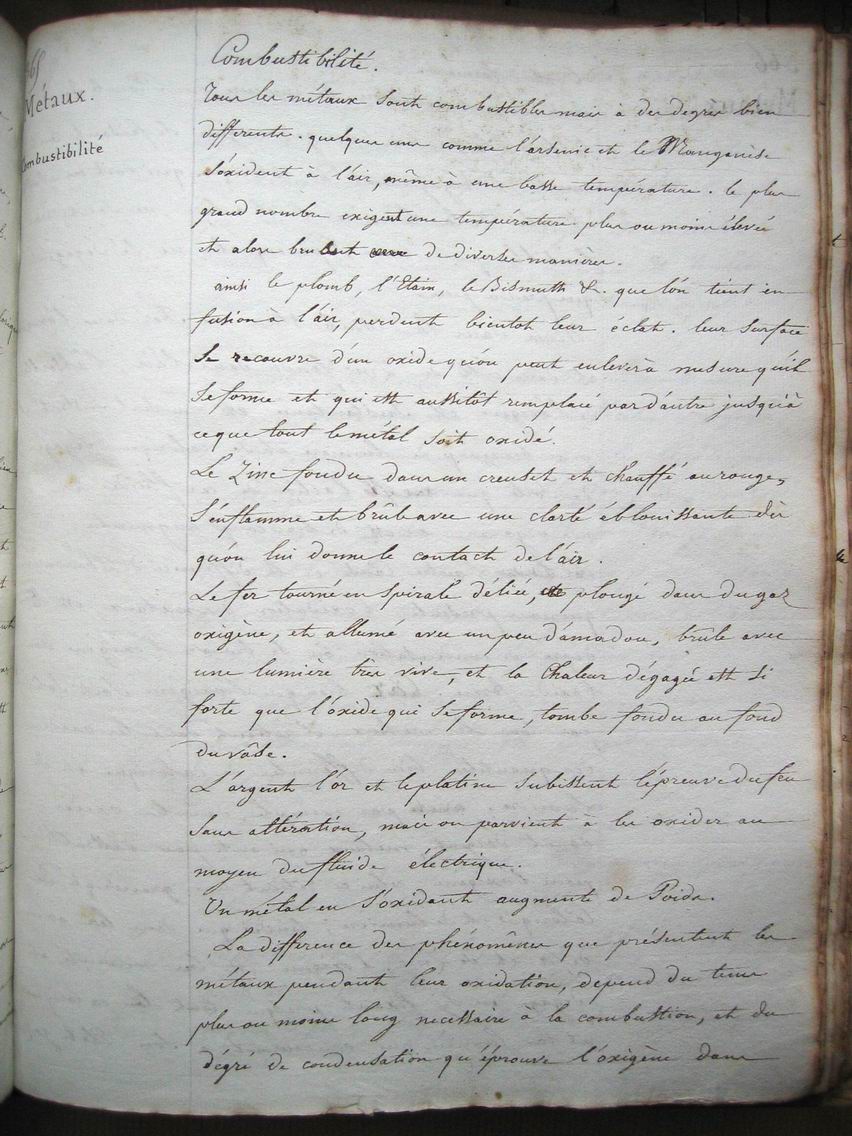 Métaux.
Combustibilité
Combustibilité.
Tous les métaux sont combustibles mais à des degres bien
differents. quelques uns comme l'arsenic et le Manganèse
s'oxident à l'air, même à une basse température. le plus
grand nombre exigent une température plus ou moins élevée
et alors brulent de diverses manieres.
ainsi le plomb, l'Etain, le Bismuth &. que l'on tient en
fusion à l'air, perdent bientot leur éclat. leur surface
se recouvre d'un oxide qu'on peut enlever à mesure qu'il
se forme et qui est aussitôt remplacé par d'autre jusqu'à
ce que tout le métal soit oxidé.
Le Zinc fondu dans un creuset et chauffé au rouge,
s'enflamme et brûle avec une clarté éblouissante dès
qu'on lui donne le contact de l'air.
Le fer tourné en spirale déliée, plongé dans du gaz
oxigène, et allumé avec un peu d'amadou, brûle avec
une lumière très vive, et la chaleur dégagée est si
forte que l'oxide qui se forme, tombe fondu au fond
du vâse.
L'argent l'or et le platine subissent l'épreuve du feu
sans altération, mais on parvient à les oxider au
moyen du fluide électrique.
Un métal en s'oxidant augmente de Poids.
La difference des phénomènes que présentent les
métaux pendant leur oxidation, depend du tems
plus ou moins long necessaire à la combustion, et du
dégré de condensation qu'éprouve l'oxigène dans